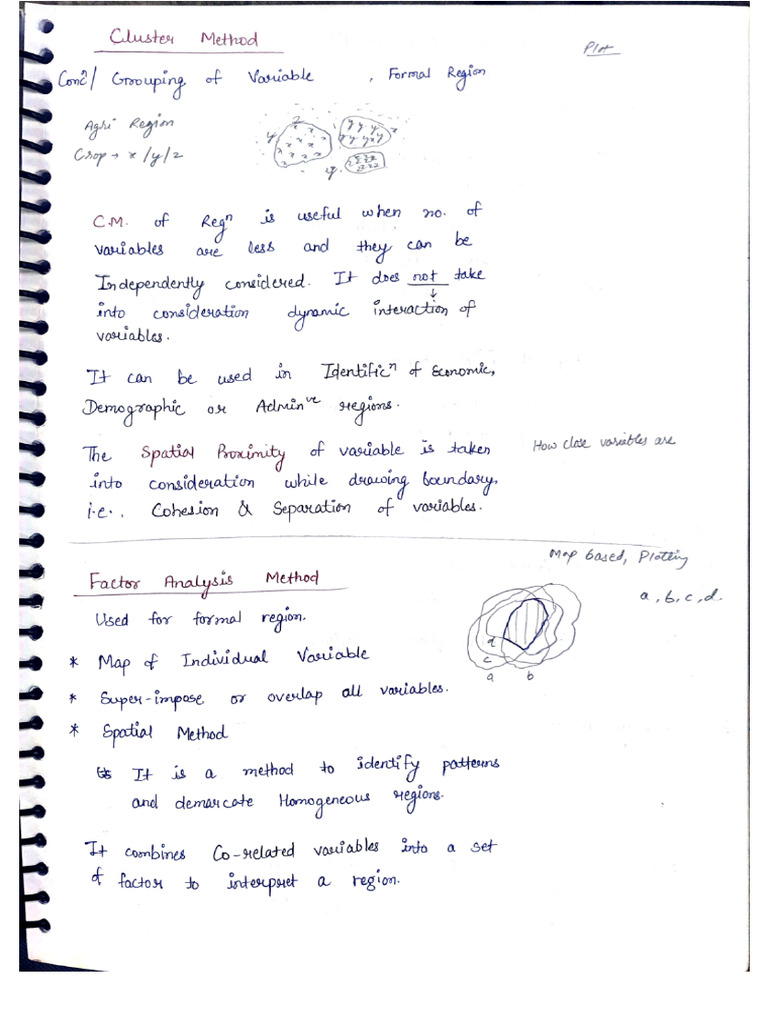 Cluster Method
Plot
Conc/ Grouping of Variable , Formal Region
Agri Region
Crop → x/y/z
C.M. of Regⁿ is useful when no. of
variables are less and they can be
Independently considered. It does not take
into consideration dynamic interaction of
variables.
It can be used in Identificⁿ of Economic,
Demographic or Adminᵛᵉ regions.
The Spatial Proximity of variable is taken
How close variables are
into consideration while drawing boundary,
i.e., Cohesion & Separation of variables.
Map based, Plotting
Factor Analysis Method
a, b, c, d.
Used for formal region.
* Map of Individual Variable
d
c
a b
* Super-impose or overlap all variables.
* Spatial Method
↳ It is a method to identify patterns
and demarcate Homogeneous regions.
It combines Co-related variables into a set
of factor to interpret a region.